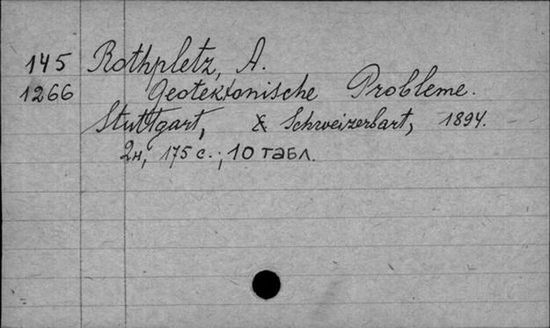 145 Rothpletz, A.
1266 Geotektonische Probleme.
Stuttgart, Schweizerbart, 1894.
2н, 175 с.; 10 табл.